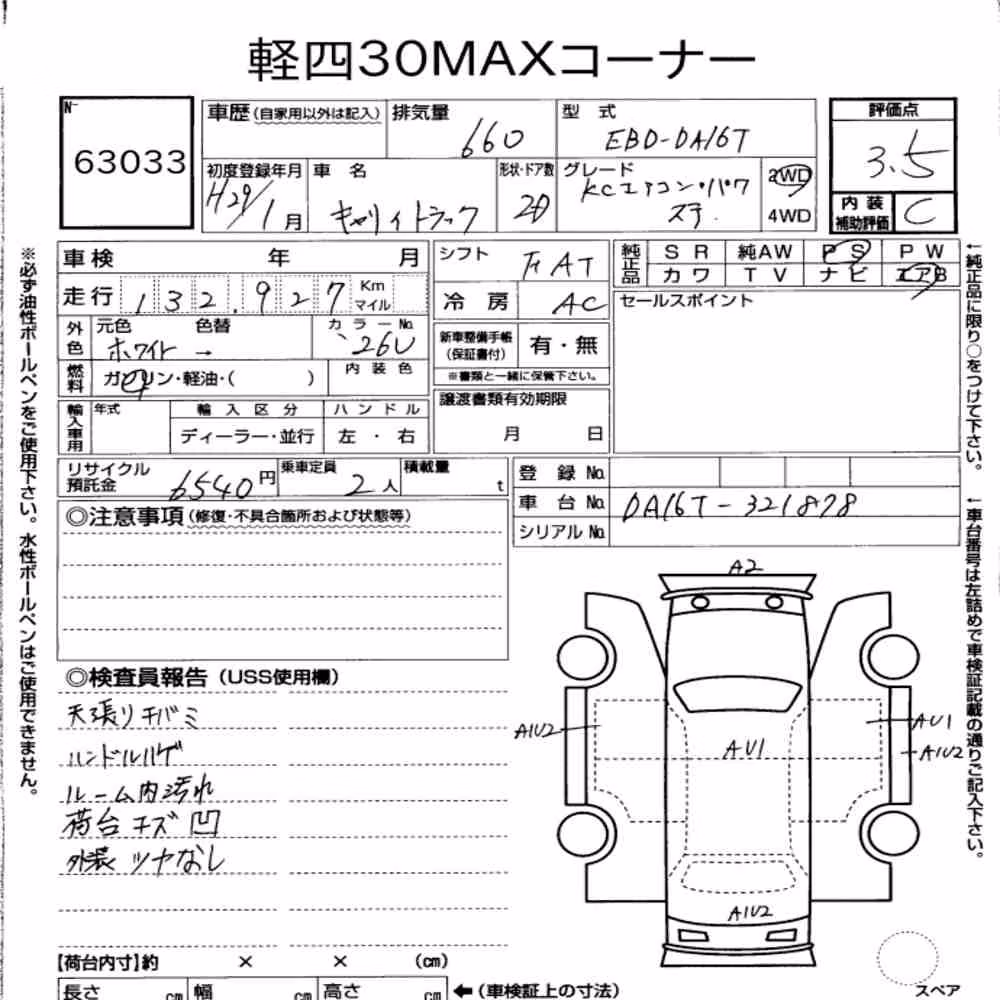 軽四30MAXコーナー
No
63033
車歴(自家用以外は記入)
排気量
660
型 式
EBD-DA16T
評価点
3.5
初度登録年月
H29/1月
車 名
キャリイトラック
形状・ドア数
2D
グレード
KCエアコン・パワ
ステ
2WD
4WD
内 装
補助評価
C
車検 年 月
走行 132,927 Km
マイル
外色 元色 色替
ホワイト →
カラーNo.
26U
燃料 ガソリン・軽油・( )
内装色
輸入車用 年式
輸入区分
ディーラー・並行
ハンドル
左・右
シフト
AT
冷房
AC
新車整備手帳
(保証書付)
有・無
※書類と一緒に保管下さい。
譲渡書類有効期限
月 日
純正品 SR 純AW PS PW
カワ TV ナビ エアB
セールスポイント
リサイクル
預託金
6540円
乗車定員
2人
積載量
t
登録No.
車台No. DA16T-321878
シリアルNo.
◎注意事項(修復・不具合箇所および状態等)
◎検査員報告(USS使用欄)
天張りキバミ
ハンドルハゲ
ルーム内汚れ
荷台キズ凹
外装ツヤなし
A2
A1U2
AU1
AU1
A1U2
A1U2
【荷台内寸】約 × × (cm)
長さ cm 幅 cm 高さ cm ←(車検証上の寸法)
スペア
※必ず油性ボールペンをご使用下さい。水性ボールペンはご使用できません。
←純正品に限り○をつけて下さい。
←車台番号は左詰めで車検証記載の通りご記入下さい。